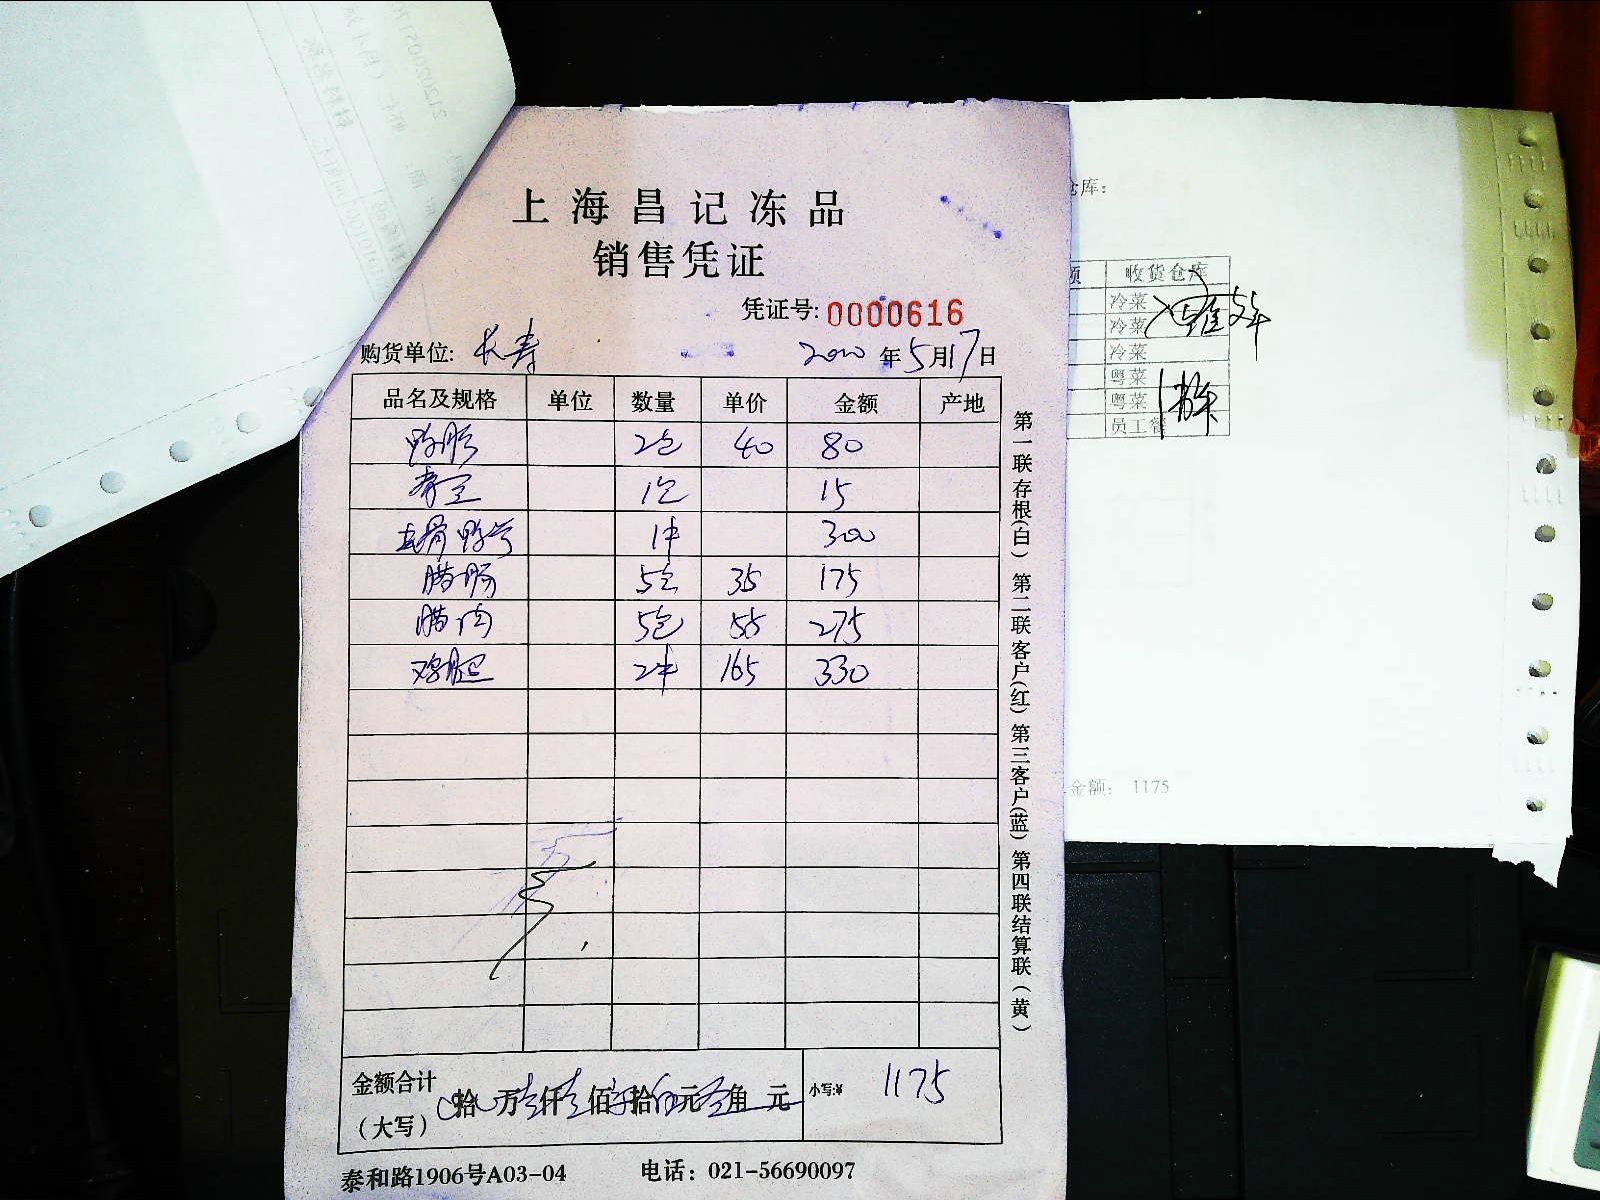 上海昌记冻品
销售凭证
凭证号: 0000616
购货单位: 长寿 2020年5月17日
品名及规格 单位 数量 单价 金额 产地
鸭肠 2包 40 80
青豆 1包 15
去骨鸭掌 1件 300
腊肠 5包 35 175
腊肉 5包 55 275
鸡腿 2件 165 330
金额合计
(大写) 拾 万 仟 佰 拾 元 角 元 小写:¥ 1175
泰和路1906号A03-04 电话: 021-56690097
第一联存根(白) 第二联客户(红) 第三客户(蓝) 第四联结算联(黄)
仓库:
额 收货仓库
冷菜
冷菜
冷菜
粤菜
粤菜
员工餐
金额: 1175